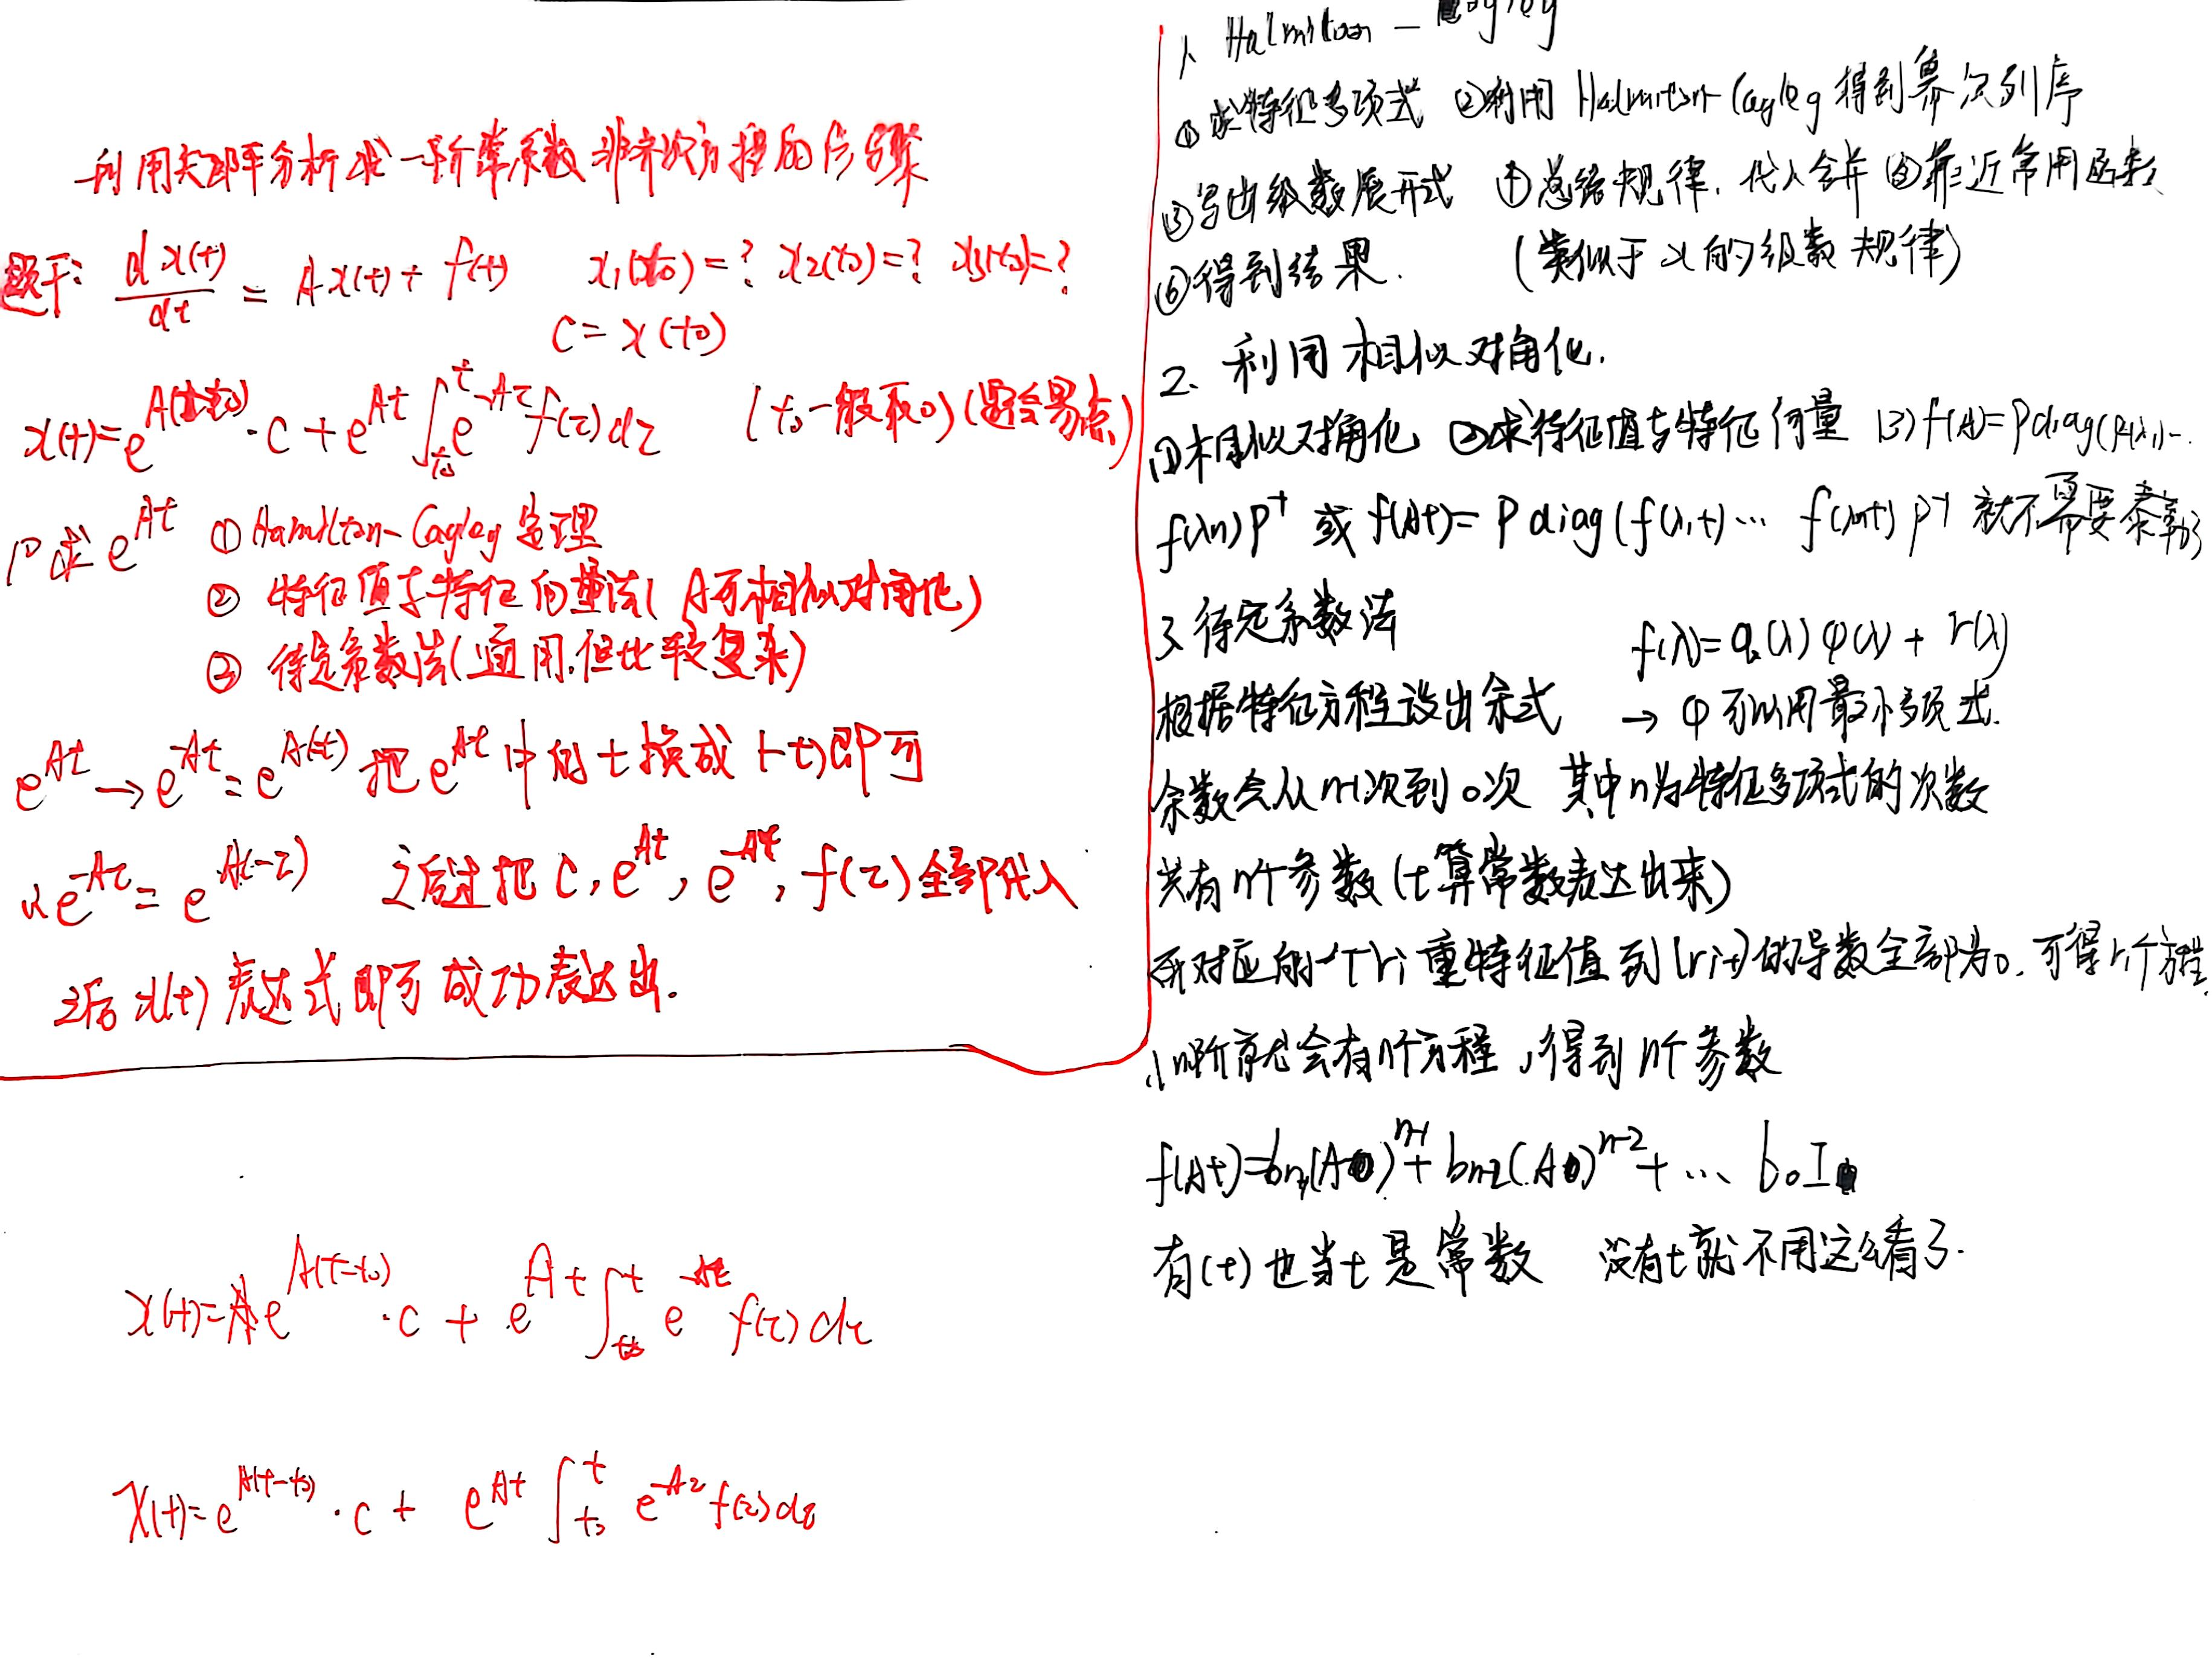 利用矩阵分析求一阶常系数非齐次方程的步骤
题干: dx(t)/dt = Ax(t) + f(t) x₁(t₀)=? x₂(t₀)=? x₃(t₀)=?
C = x(t₀)
x(t)=e^{A(t-t₀)}·C + e^{At}∫_{t₀}^{t} e^{-Aτ}f(τ)dτ (t₀一般取0)(易点)
求e^{At} ① Hamilton-Cagley定理
② 特征值与特征向量法(A可相似对角化)
③ 待定系数法(通用,但比较复杂)
e^{At} → e^{-At} = e^{A(-t)} 把e^{At}中的t换成(-t)即可
e^{-Aτ} = e^{A(-τ)} 之后把C, e^{At}, e^{-Aτ}, f(τ)全部代入
之后x(t)表达式即可成功表达出.
x(t)=e^{A(t-t₀)}·C + e^{At}∫_{t₀}^{t} e^{-Aτ}f(τ)dτ
x(t)=e^{A(t-t₀)}·C + e^{At}∫_{t₀}^{t} e^{-Aτ}f(τ)dτ
1. Halmilton - Cagley
① 求特征多项式 ②利用Halmilton-Cagley得到幂次列序
③写出级数展开式 ④总结规律,代入合并 ⑤靠近常用函数
⑥得到结果. (类似于x的级数规律)
2. 利用相似对角化.
①相似对角化 ②求特征值与特征向量 (3) f(A)=Pdiag(f(λ₁)…
f(λn))P⁻¹ 或 f(At)=Pdiag(f(λ₁t)… f(λnt))P⁻¹ 就不需要泰勒了
3. 待定系数法 f(λ)=q(λ)φ(λ)+r(λ)
根据特征方程设出余式 → φ可以用最小多项式.
余数会从n-1次到0次 其中n为特征多项式的次数
共有n个参数(t算常数表达出来)
对应的一个ri重特征值到(ri-1)的导数全部为0.可得ri个方程.
n阶就会有n个方程,得到n个参数
f(At)=b_{n-1}(A)^{n-1}+b_{n-2}(A)^{n-2}+… b₀I
有(t)也当t是常数 没有t就不用这么看了.